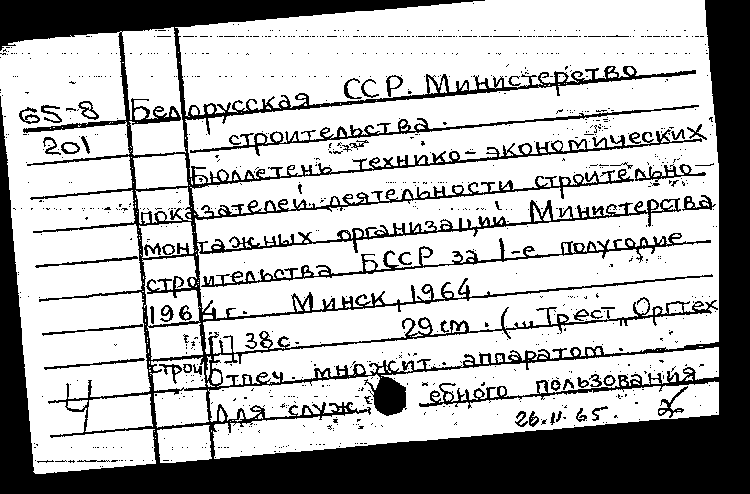 65-8 Белорусская ССР. Министерство
201 строительства.
Бюллетень технико-экономических
показателей деятельности строительно-
монтажных организаций Министерства
строительства БССР за 1-е полугодие
1964 г. Минск, 1964.
[1], 38 с. 29 см. (... Трест „Оргтех
строй
Отпеч. множит. аппаратом.
4 Для служебного пользования
26.II.65.